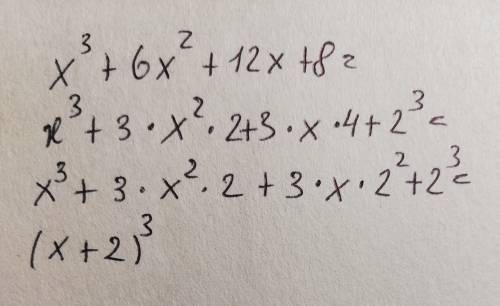 x³ + 6x² + 12x + 8 =
x³ + 3 · x² · 2 + 3 · x · 4 + 2³ =
x³ + 3 · x² · 2 + 3 · x · 2² + 2³ =
(x + 2)³